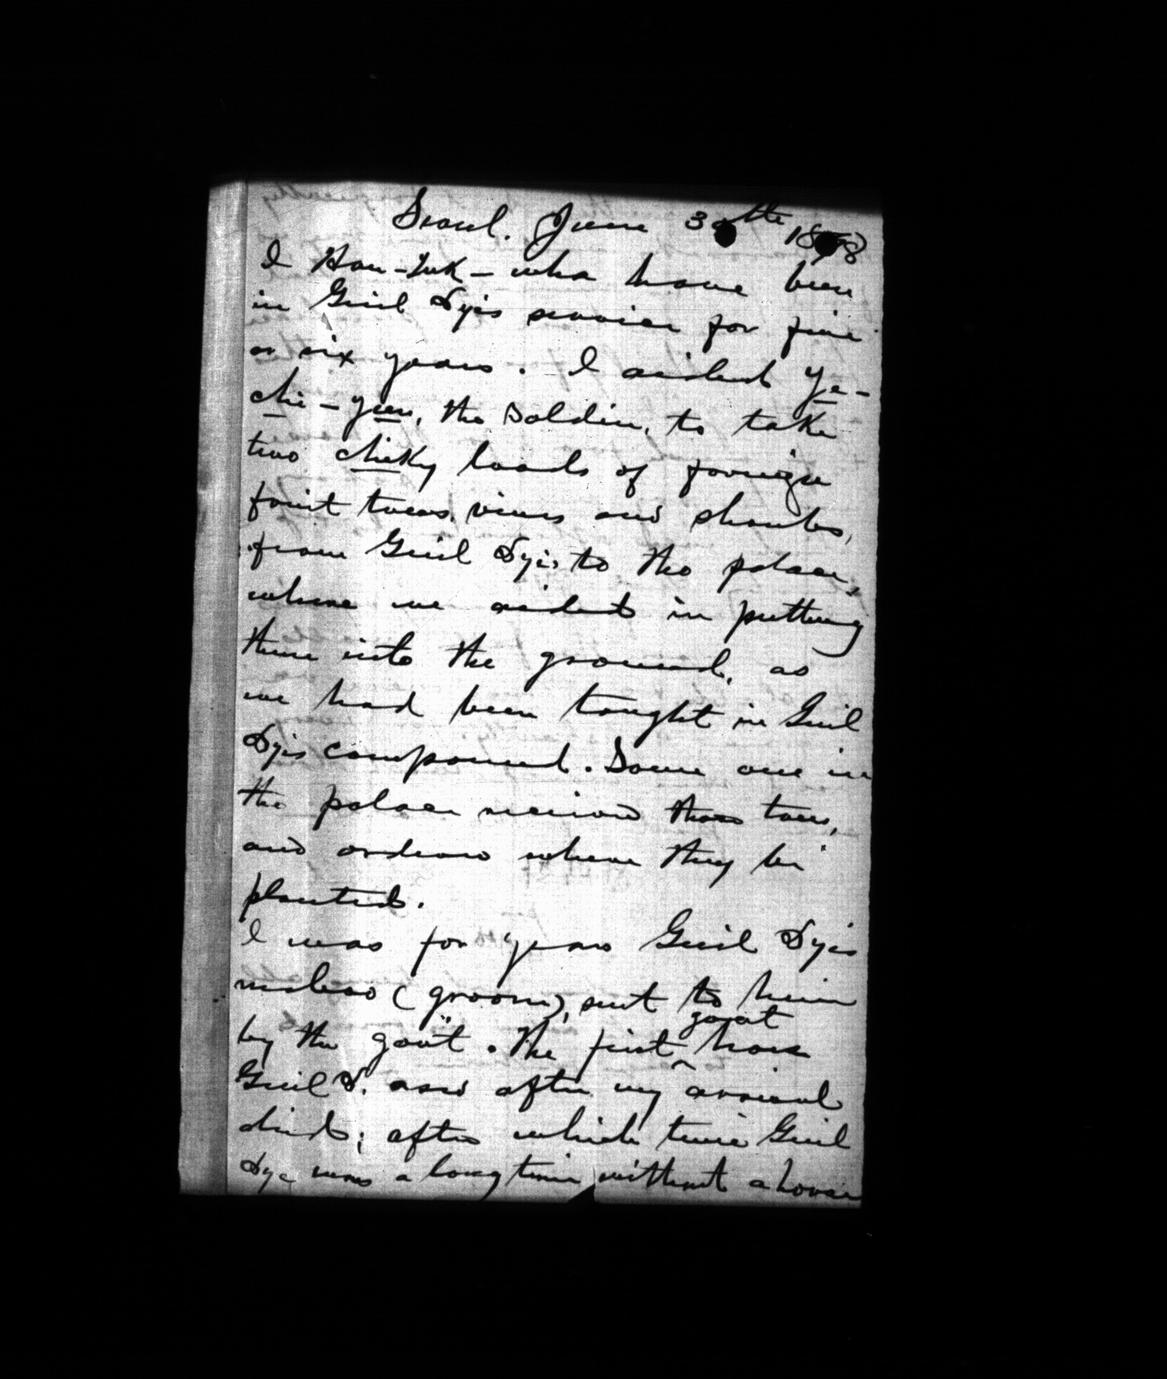 Seoul. June 30th 1898
I Han-Suk - who have been
in Genl Dye's service for five
or six years. I aided Ye-
chi-yun, the soldier, to take
two chicky loads of foreign
fruit trees, vines and shrubs,
from Genl Dye's to the palace,
where we aided in putting
them into the ground, as
we had been taught in Genl
Dye's compound. Some one in
the palace received these trees,
and ordered where they be
planted.
I was for years Genl Dye's
(groom), sent to him
by the gov't. The first gov't horse
Genl D. after my arrival
died; after which time Genl
Dye was a long time without a horse